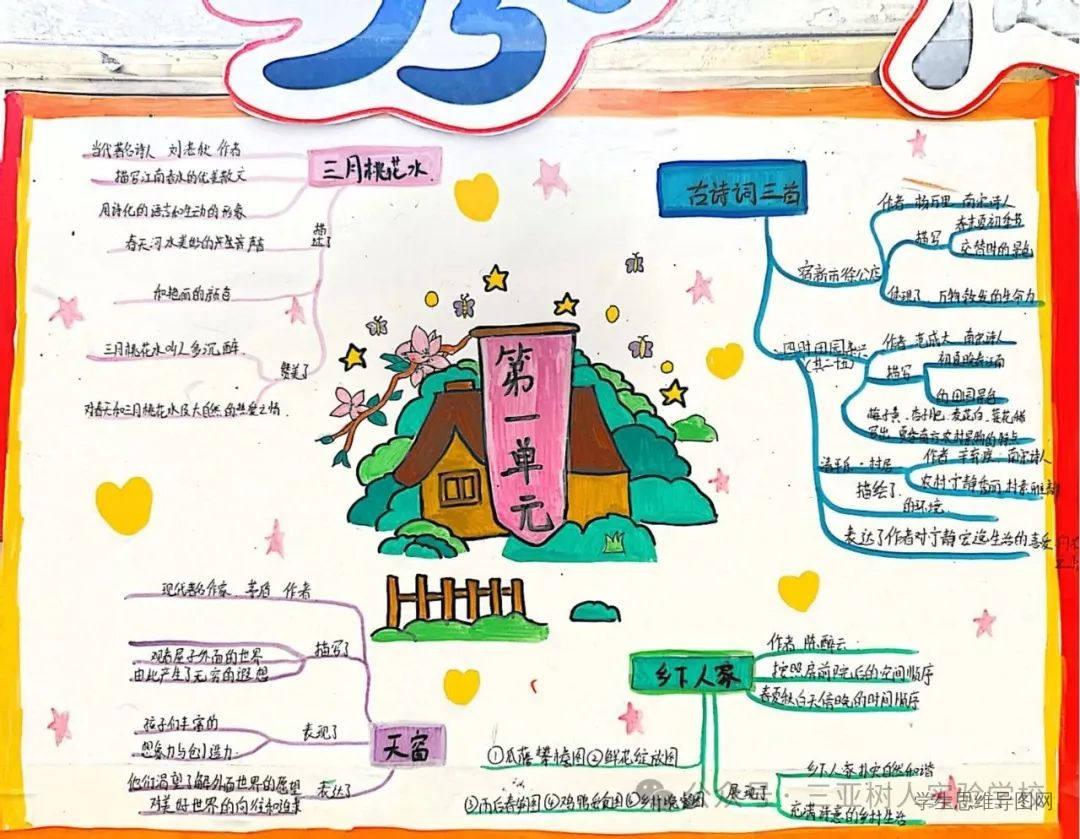 三月桃花水
当代著名诗人 刘老伙 作者
描写江南春水的优美散文
用诗化的语言和生动的形象
描述了
春天河水美妙的声音
和艳丽的颜色
三月桃花水叫人多沉醉
赞美了
对春天和三月桃花水及大自然的热爱之情
古诗词三首
宿新市徐公店
作者 杨万里 南宋诗人
描写
春末夏初季节
交替时的景色
体现了 万物勃发的生命力
四时田园杂兴
(其二十五)
作者 范成大 南宋诗人
描写
初夏时节江南
的田园景色
梅子黄、杏子肥、麦花白、菜花稀
写出 夏季南方农村景物的特点
清平乐·村居
作者 辛弃疾 南宋诗人
描绘了
农村宁静
的环境
表达了作者对宁静安逸生活的喜爱
第一单元
天窗
现代著名作家 茅盾 作者
描写了
观看屋子外面的世界
由此产生了无穷的遐想
表现了
孩子们丰富的
想象力与创造力
表达了
他们渴望了解外面世界的愿望
对美好世界的向往和追求
乡下人家
作者 陈醉云
按照房前院后的空间顺序
春夏秋白天傍晚的时间顺序
①瓜藤攀檐图②鲜花绽放图
③雨后春笋图④鸡鸭觅食图⑤乡村晚餐图
展现了
乡下人家朴实自然和谐
充满诗意的乡村生活
公众号·三亚树人实验学校
学生思维导图网